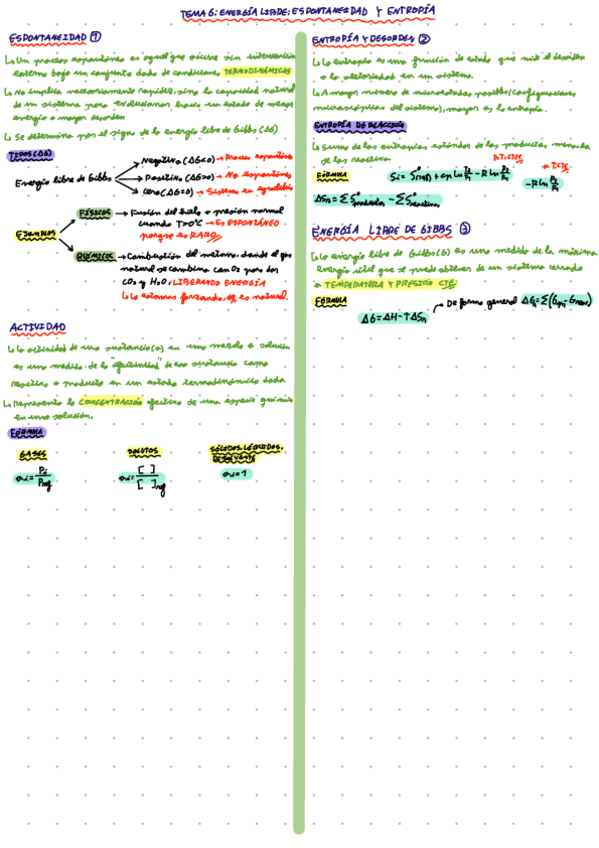 TEMA 6: ENERGÍA LIBRE: ESPONTANEIDAD Y ENTROPÍA
ESPONTANEIDAD ①
↳ Un proceso espontáneo es aquel que ocurre sin intervención
externa bajo un conjunto dado de condiciones TERMODINÁMICAS
↳ No implica necesariamente rapidez, sino la capacidad natural
de un sistema para evolucionar hacia un estado de menor
energía o mayor desorden
↳ Se determina por el signo de la energía libre de Gibbs (ΔG)
TIPOS (ΔG)
Energía libre de Gibbs
Negativa (ΔG<0) → Proceso espontáneo
Positiva (ΔG>0) → No espontáneo
Cero (ΔG=0) → Sistema en equilibrio
EJEMPLOS
FÍSICOS → Fusión del hielo a presión normal
cuando T>0°C → Es ESPONTÁNEO
porque es RARO
QUÍMICOS → Combustión del metano, donde el gas
natural se combina con O₂ para dar
CO₂ y H₂O, LIBERANDO ENERGÍA
↳ Lo estamos forzando, es natural.
ACTIVIDAD
↳ La actividad de una sustancia (a) en una mezcla o solución
es una medida de la "efectividad" de esa sustancia como
reactivo o producto en un estado termodinámico dado
↳ Representa la CONCENTRACIÓN efectiva de una especie química
en una solución.
FÓRMULA
GASES
ai = Pi/Pref
SOLUTOS
ai = [ ]/[ ]ref
SÓLIDOS, LÍQUIDOS,
DISOLVENTE
ai = 1
ENTROPÍA Y DESORDEN ②
↳ La entropía es una función de estado que mide el desorden
o la aleatoriedad en un sistema.
↳ A mayor número de microestados posibles (configuraciones
microscópicas del sistema), mayor es la entropía.
ENTROPÍA DE REACCIÓN
↳ Suma de las entropías estándar de los productos menos la
de los reactivos
FÓRMULA
ΔSn = Σ S°productos − Σ S°reactivos
ENERGÍA LIBRE DE GIBBS ③
↳ La energía libre de Gibbs (G) es una medida de la máxima
energía útil que se puede obtener de un sistema cerrado
a TEMPERATURA Y PRESIÓN CTE
FÓRMULA
ΔG = ΔH − TΔSn
De forma general